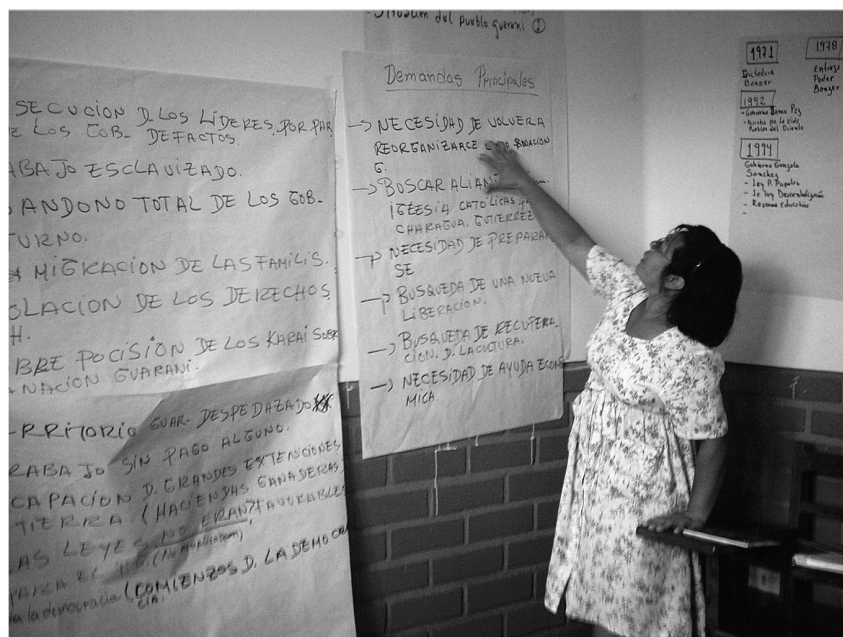 SECUCION D. LOS LÍDERES, POR PAR
LOS GOB. DEFACTOS.
ABAJO ESCLAVIZADO.
ANDONO TOTAL DE LOS GOB.
TURNO.
MIGRACION DE LAS FAMILIS.
OLACION DE LOS DERECHOS
H.
BRE POCISIÓN DE LOS KARAI SOBR
NACIÓN GUARANI.
RRITORIO GUAR. DESPEDAZADO
RABAJO SIN PAGO ALGUNO.
CAPACION D. GRANDES EXTENCIONES
TIERRA (HACIENDAS GANADERAS
AS LEYES NO ERAN FAVORABLES
PARA EL
la democracia (COMIENZOS D. LA DEMOCRA
CIA.
Situacion del pueblo guarani
Demandas Principales
→ NECESIDAD DE VOLVER A
REORGANIZARCE COMO NACIÓN
G.
→ BUSCAR ALIAN
IGLESIA CATOLICAS
CHARAGUA. GUTIERREZ
→ NECESIDAD DE PREPARAR
SE
→ BUSQUEDA DE UNA NUEVA
LIBERACIÓN.
→ BUSQUEDA DE RECUPERA
CION. D. LA CULTURA.
→ NECESIDAD DE AYUDA ECONO
MICA.
1971
Dictadura
Banzer
1978
Entrega
Poder
Banzer
1992
- Gobierno Jaime Paz
- Marcha por la vida
Pueblos del Oriente
1994
Gobierno Gonzalo
Sanchez
- Ley P. Popular
- Ley Descentralización
- Reforma Educativa
-